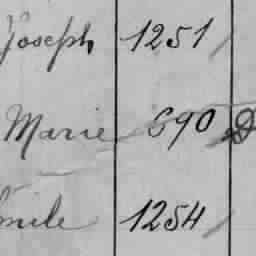 Joseph 1251
Marie 690
Emile 1254